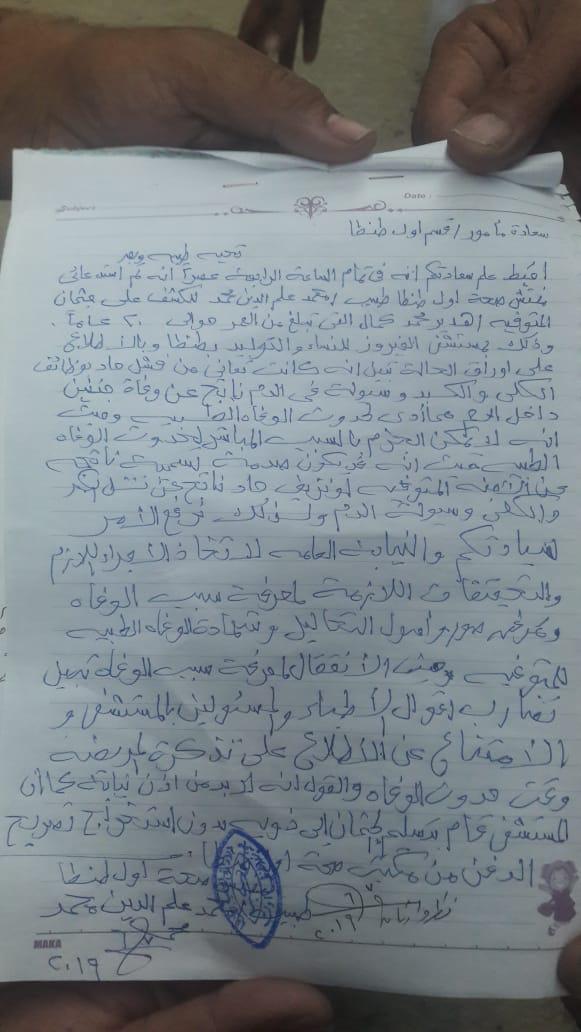 Subject:
Date:
سعادة مأمور / قسم اول طنطا
تحية طيبة وبعد
أحيط علم سيادتكم انه فى تمام الساعة الرابعة عصراً انه تم استدعائى
مفتش صحة اول طنطا طبيب / محمد علم الدين محمد للكشف على جثمان
المتوفيه / هدير محمد كمال التى تبلغ من العمر حوالى ٢٠ عاماً.
وذلك بمستشفى الفيروز للنساء والتوليد بطنطا وبالاطلاع
على اوراق الحالة تبين انه كانت تعانى من فشل حاد بوظائف
الكلى والكبد وسيولة فى الدم ناتج عن وفاة جنين
داخل الرحم مما أدى لحدوث الوفاه وحيث
انه لا يمكن الجزم بالسبب المباشر لحدوث الوفاه
حيث انه قد يكون صدمة تسممية ناتجه
عن المتوفى او نزيف حاد ناتج عن فشل الكبد
والكلى وسيولة الدم ولذلك نرفع الأمر
لسيادتكم والنيابة العامه لاتخاذ الاجراء اللازم
والتحقيقات اللازمة لمعرفة سبب الوفاه
صور واصول التحاليل وشهادة الوفاه الطبيه
للمتوفيه لمعرفة سبب الوفاة
تضارب اقوال الأطباء والمسئولين بالمستشفى و
الامتناع عن الاطلاع على تذكرة المريضه
وقت حدوث الوفاه والقول انه لابد من اذن نيابة كما أن
المستشفى قام بتسليم الجثمان الى ذويه بدون استخراج تصريح
الدفن من مكتب صحة اول طنطا
صحة اول طنطا
طبيب / محمد علم الدين محمد
٢٠١٩
٢٠١٩
MAKA